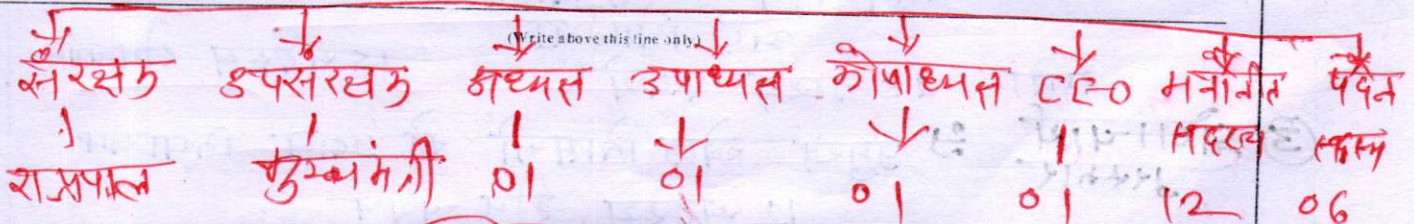 (Write above this line only)
संरक्षक उपसंरक्षक अध्यक्ष उपाध्यक्ष कोषाध्यक्ष CEO मनोनीत पदेन
सदस्य सदस्य
राज्यपाल मुख्यमंत्री 01 01 01 01 12 06